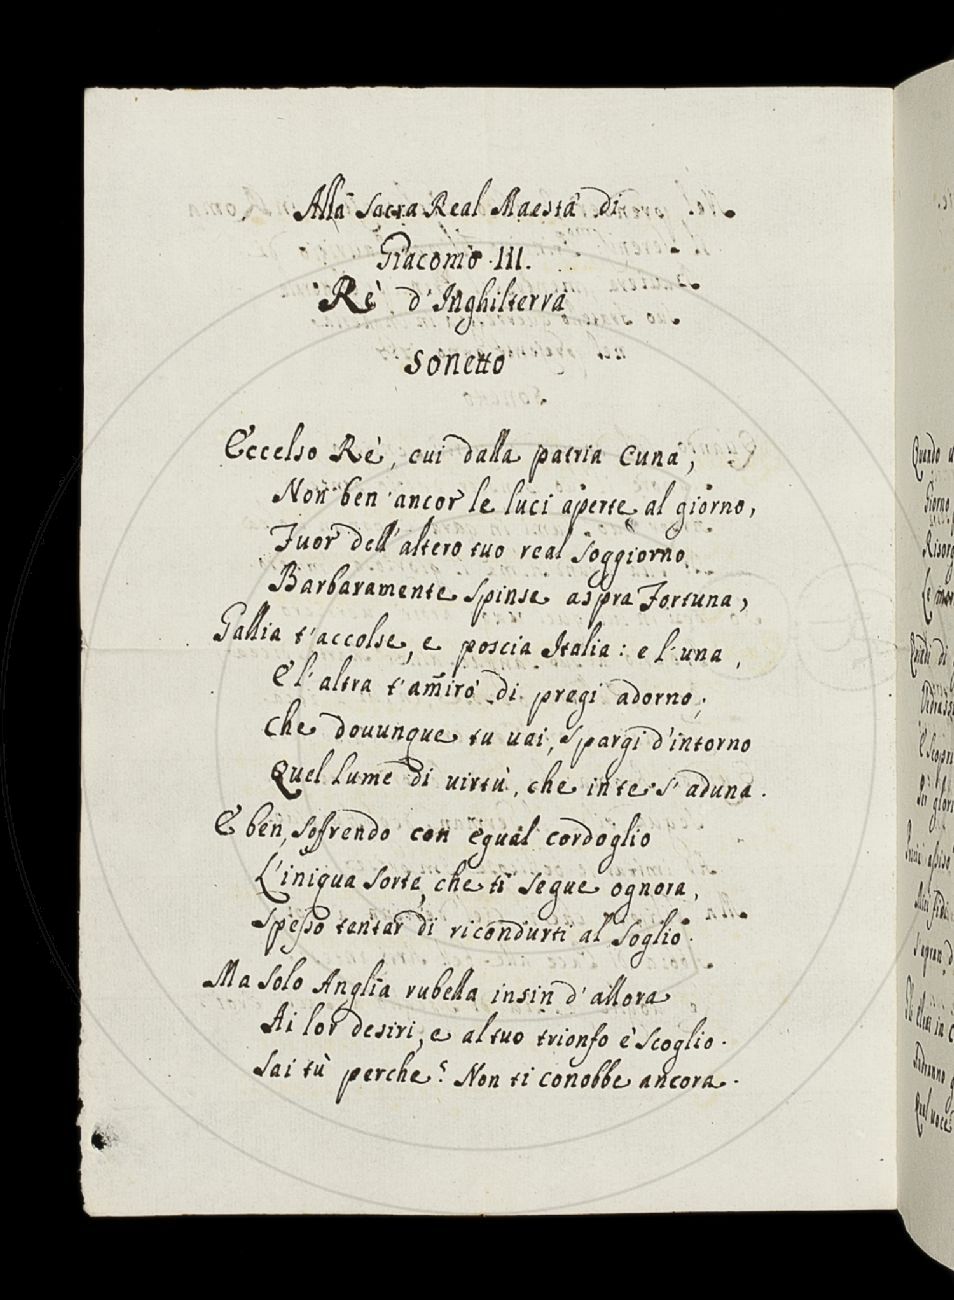 Alla Sacra Real Maestà di
Giacomo III.
Rè d'Inghilterra
Sonetto
Eccelso Rè, cui dalla patria Cuna,
Non ben ancor le luci aperte al giorno,
Fuor dell'altero tuo real soggiorno
Barbaramente spinse aspra Fortuna,
Gallia t'accolse, e poscia Italia: e l'una,
E l'altra t'amirò di pregi adorno;
Che douunque tu uai, spargi d'intorno
Quel lume di uirtù, che in te s'aduna.
E ben, sofrendo con egual cordoglio
L'iniqua sorte, che ti segue ognora,
Spesso tentar di ricondurti al soglio.
Ma solo Anglia rubella insin d'allora
Ai lor desiri, e al tuo trionfo è scoglio.
Sai tù perche? Non ti conobbe ancora.
Quando
Giorno